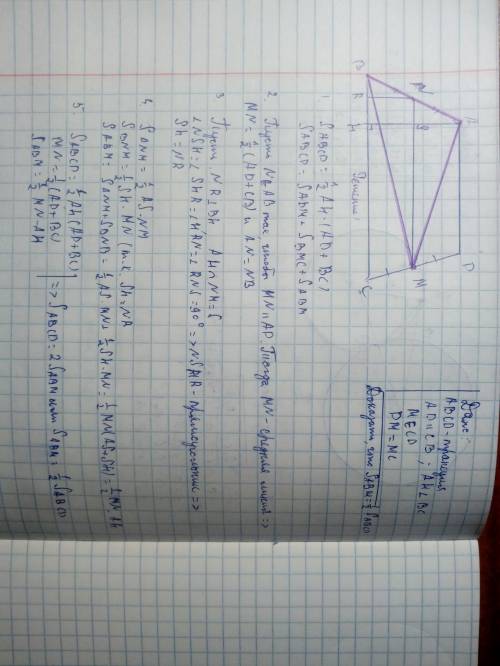 Дано:
ABCD - трапеция
AD || CB; AH ⊥ BC
M ∈ CD
DM = MC
Доказать, что S ABM = 1/2 S ABCD
A D
N S M
B R H C
Решение:
1. S ABCD = 1/2 AH · (AD + BC)
S ABCD = S ADM + S BMC + S ABM
2. Пусть N ∈ AB так чтобы MN || AD. Тогда MN - средняя линия =>
MN = 1/2 (AD + CB) и AN = NB
3 Пусть NR ⊥ BH, AH ∩ NM = S
∠NSH = ∠SHR = ∠RNS = 90° => NSHR - прямоугольник =>
SH = NR
4. S ANM = 1/2 AS · NM
S BNM = 1/2 SH · MN (т.к. SH = NR
S ABM = S ANM + S BNM = 1/2 AS · MN + 1/2 SH · MN = 1/2 MN (AS + SH) = 1/2 MN · AH
5. S ABCD = 1/2 AH (AD + BC)
MN = 1/2 (AD + BC) => S ABCD = 2 S ABM или S ABM = 1/2 S ABCD
S ABM = 1/2 MN · AH